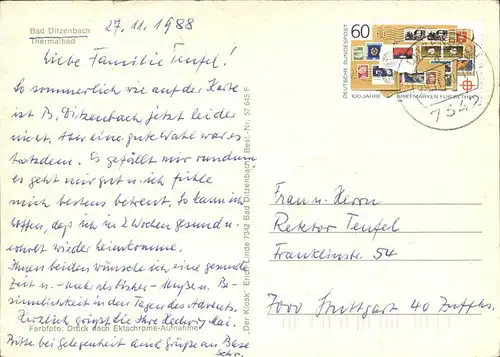 27. 11. 1988
Bad Ditzenbach
Thermalbad
Liebe Familie Teufel!
So sommerlich wie auf der Karte
ist B. Ditzenbach jetzt leider
nicht. Aber eine gute Wahl war es
trotzdem. Es gefällt mir rundum,
es geht mir gut u. ich fühle
mich bestens betreut. So kann ich
hoffen, daß ich in 2 Wochen gesund u.
erholt wieder heimkomme.
Ihnen beiden wünsche ich eine gesunde
Zeit u. - nach als bisher - Muße u. Be-
sinnlichkeit in den Tagen des Advents.
Herzlich grüßt Sie Ihre Hedwig
Farbfoto: Druck nach Ektachrome-Aufnahme
Bitte bei Gelegenheit auch Grüße an
"Der Kiosk" Erich Linde 7342 Bad Ditzenbach Best.-Nr. 57 645 F
DEUTSCHE BUNDESPOST
60
100 JAHRE BRIEFMARKEN
7342
Frau u. Herrn
Rektor Teufel
Franklinstr. 54
7000 Stuttgart 40 Zuffhs.